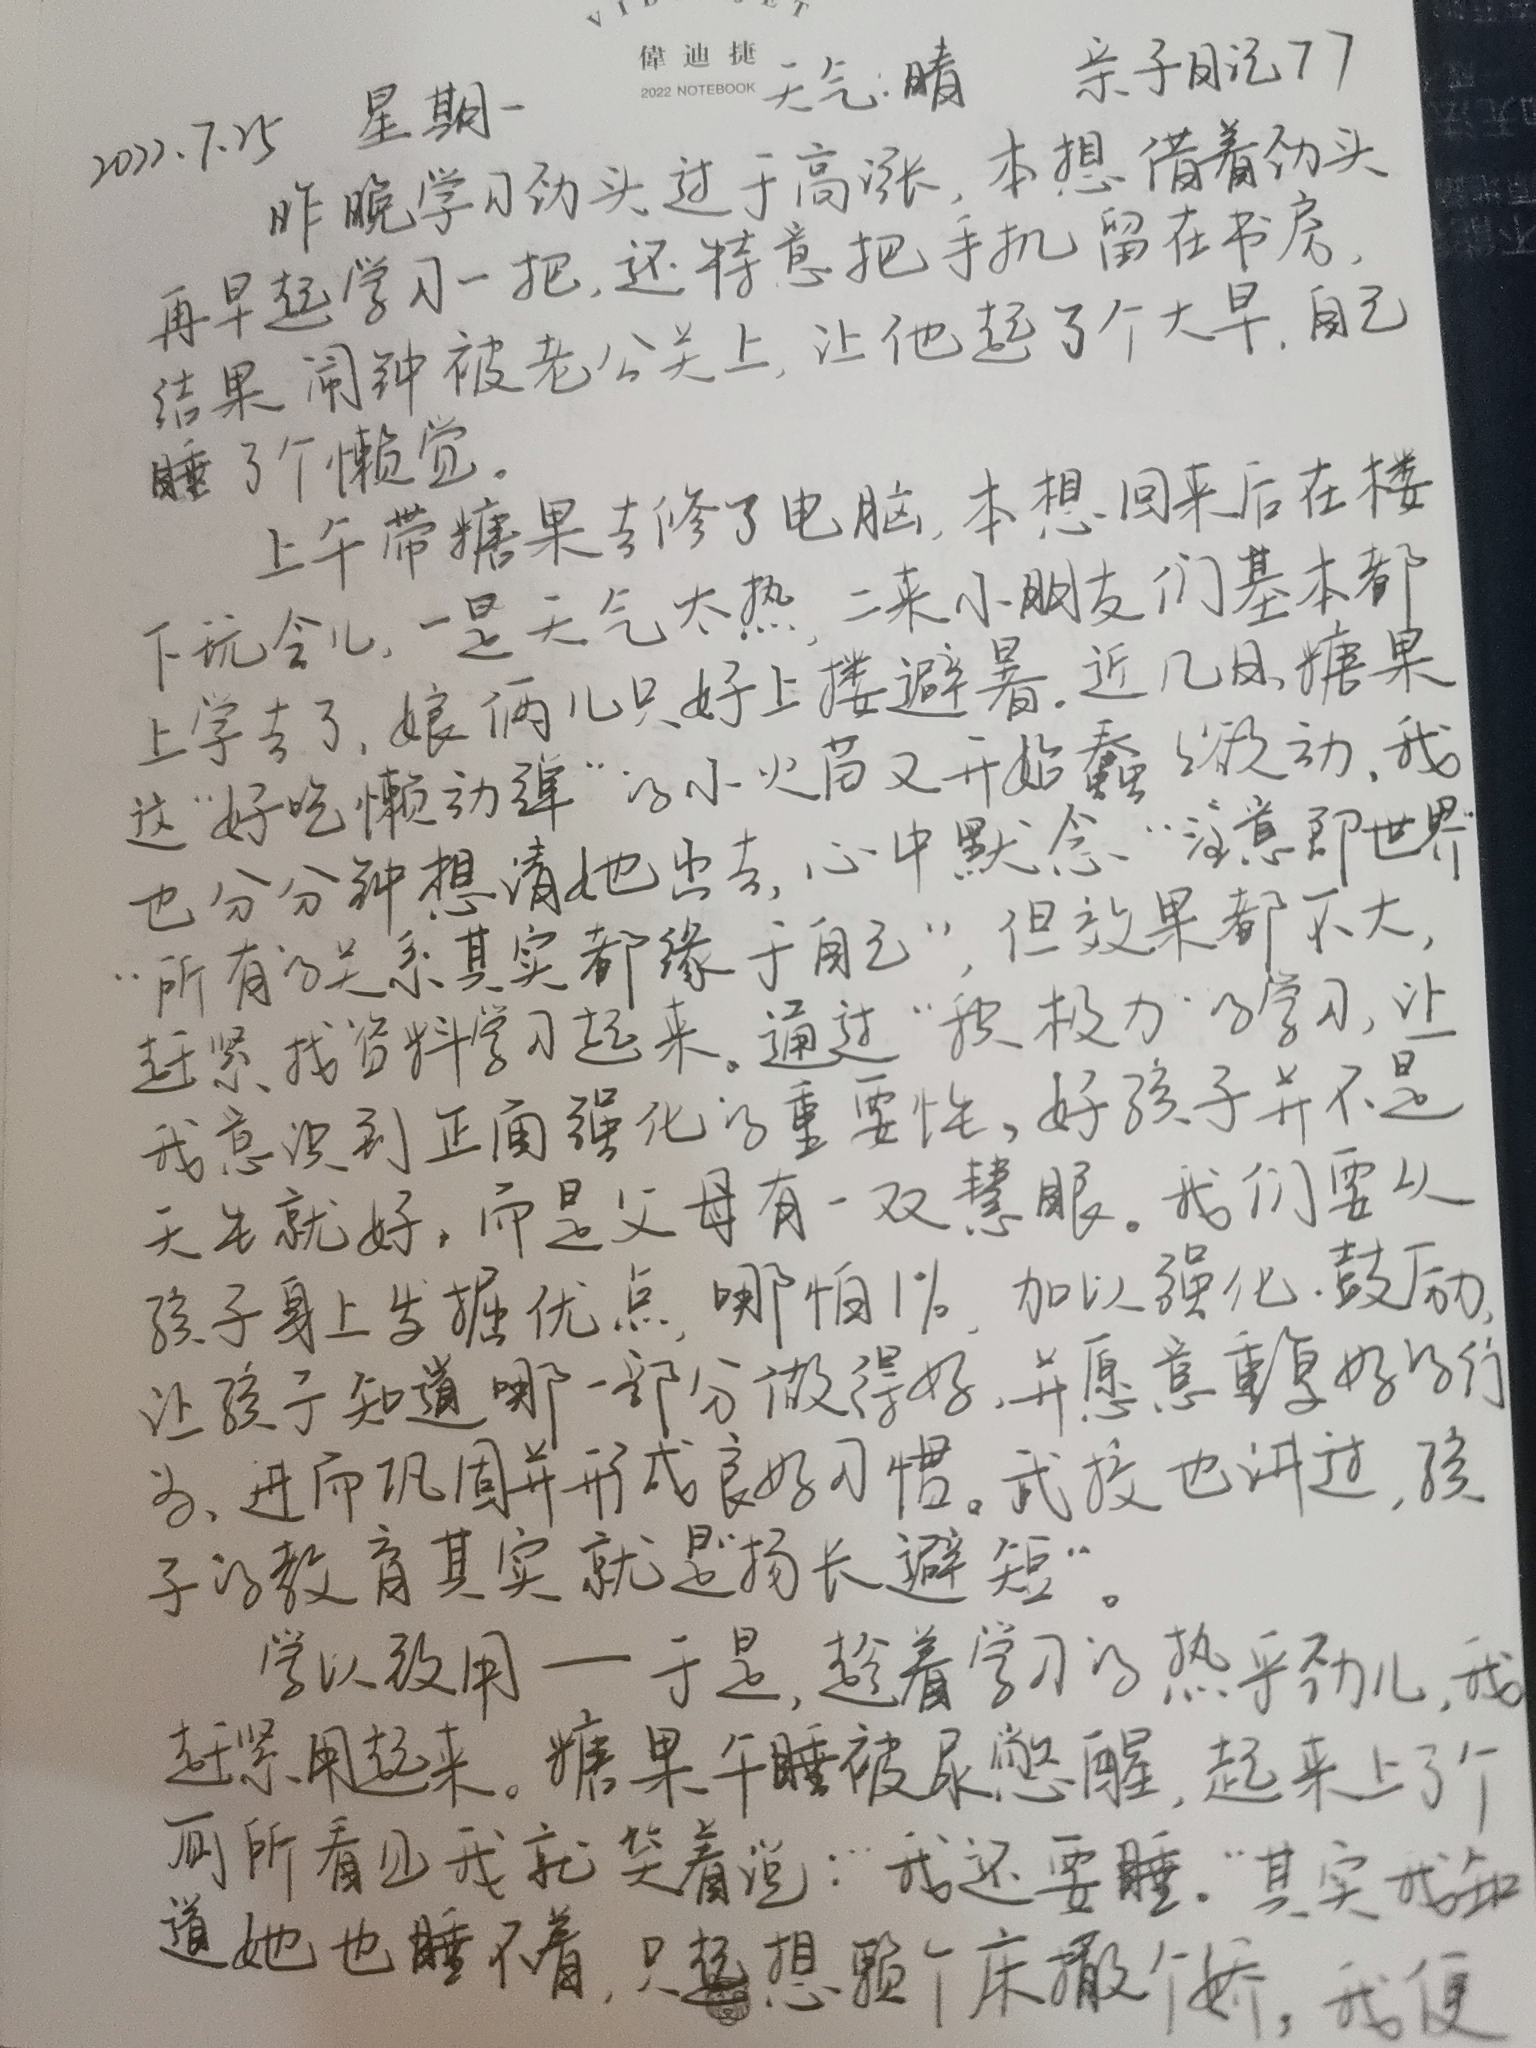 偉迪捷
2022 NOTEBOOK
2022.7.25 星期一 天气:晴 亲子日记77
昨晚学习劲头过于高涨,本想借着劲头
再早起学习一把,还特意把手机留在书房,
结果闹钟被老公关上,让他起了个大早,自己
睡了个懒觉。
上午带糖果去修了电脑,本想回来后在楼
下玩会儿,一是天气太热,二来小朋友们基本都
上学去了,娘俩儿只好上楼避暑。近几日,糖果
这“好吃懒动弹”的小火苗又开始蠢蠢欲动,我
也分分钟想请她出去,心中默念“注意即世界”
“所有的关系其实都缘于自己”,但效果都不大,
赶紧找资料学习起来。通过“积极力”的学习,让
我意识到正面强化的重要性,好孩子并不是
天生就好,而是父母有一双慧眼。我们要从
孩子身上发掘优点,哪怕1%,加以强化.鼓励,
让孩子知道哪一部分做得好,并愿意重复好的行
为、进而巩固并形成良好习惯。武校也讲过,孩
子的教育其实就是“扬长避短”。
学以致用——于是,趁着学习的热乎劲儿,我
赶紧用起来。糖果午睡被尿憋醒,起来上了个
厕所看见我就笑着说:“我还要睡。”其实我知
道她也睡不着,只是想赖个床撒个娇,我便